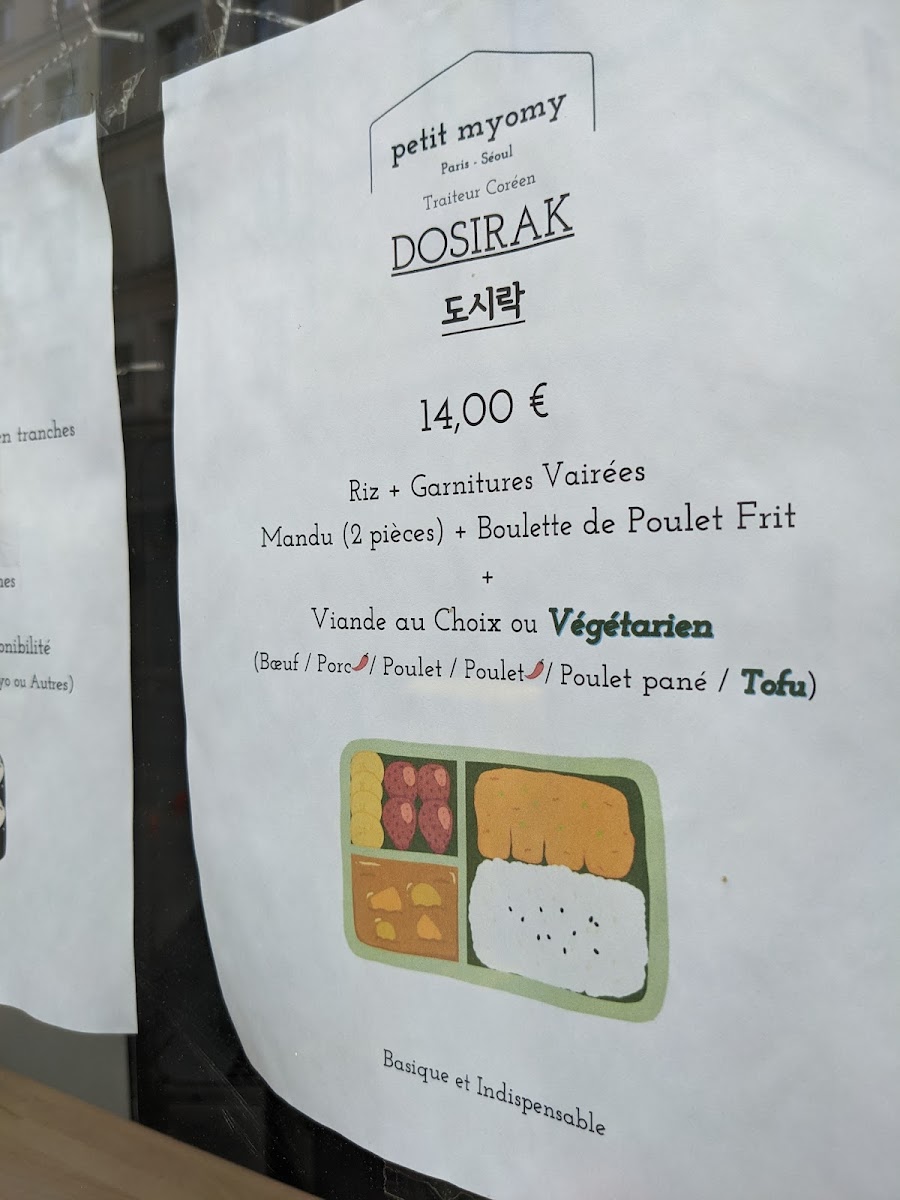 en tranches
onibilité
yo ou Autres)
petit myomy
Paris - Séoul
Traiteur Coréen
DOSIRAK
도시락
14,00 €
Riz + Garnitures Vairées
Mandu (2 pièces) + Boulette de Poulet Frit
+
Viande au Choix ou Végétarien
(Bœuf / Porc🌶/ Poulet / Poulet🌶/ Poulet pané / Tofu)
Basique et Indispensable